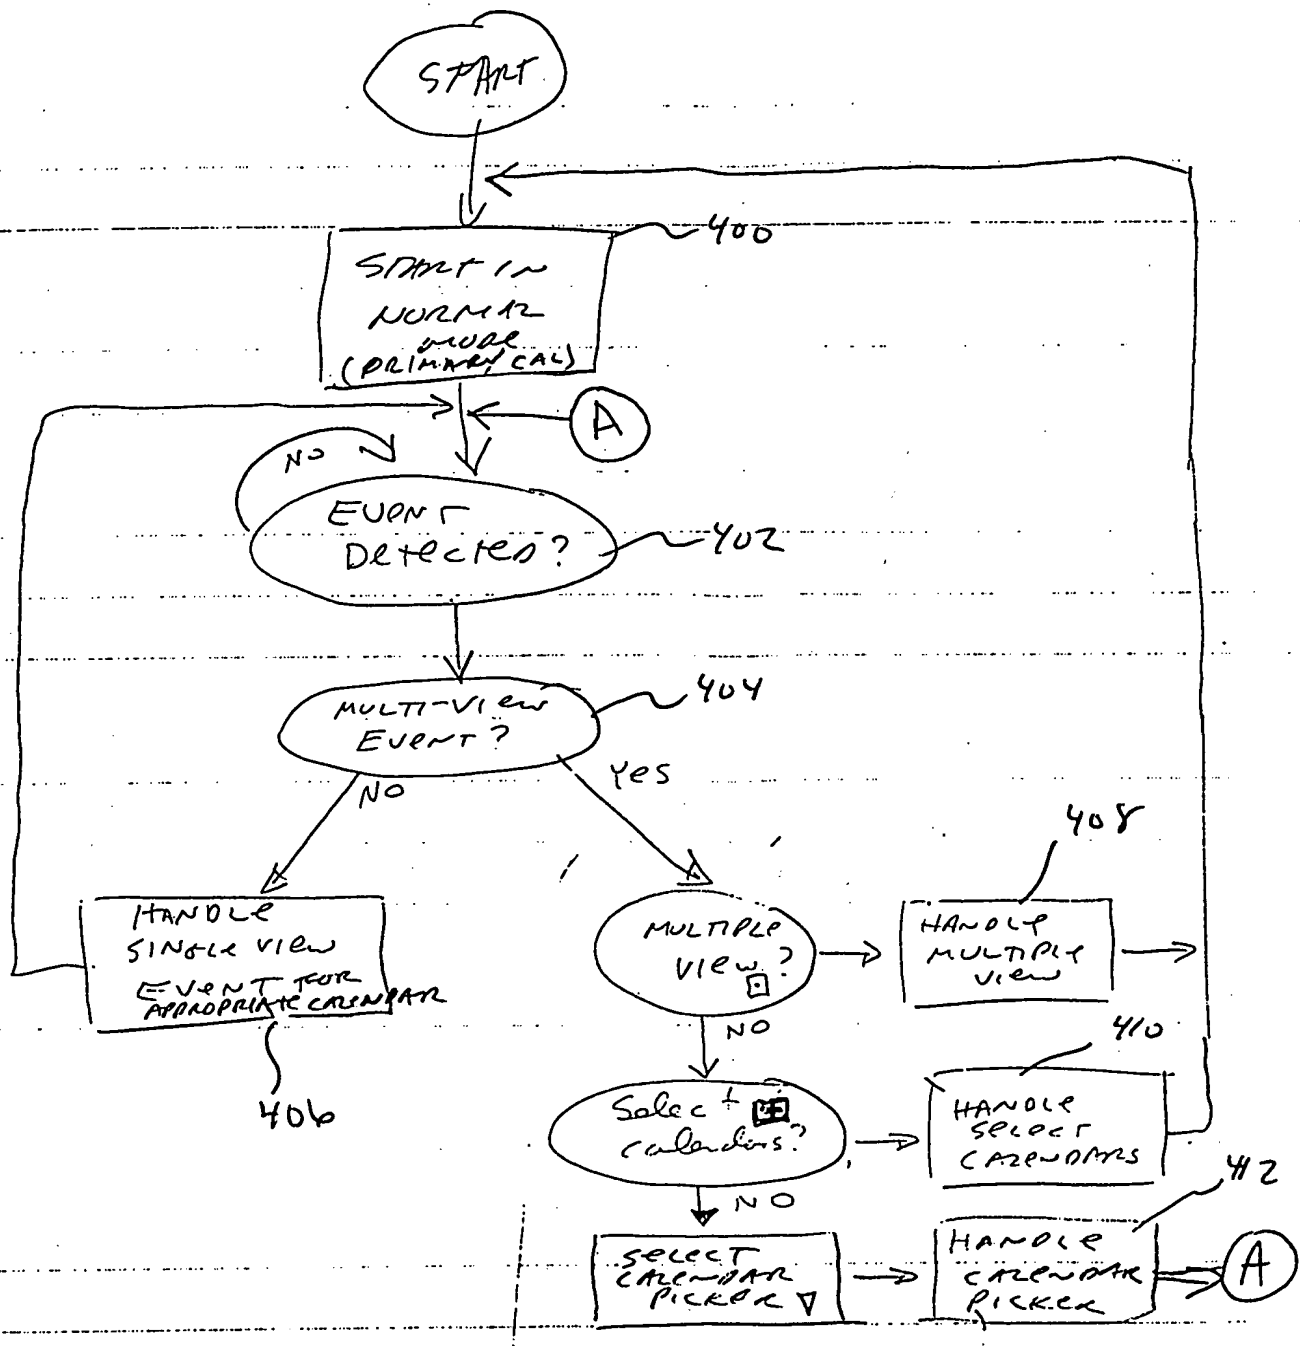 START
400
START IN
NORMAL
MODE
(PRIMARY CAL)
A
NO
EVENT
Detected?
402
404
MULTI-VIEW
EVENT?
NO
Yes
408
HANDLE
SINGLE VIEW
EVENT FOR
APPROPRIATE CALENDAR
406
MULTIPLE
VIEW?
HANDLE
MULTIPLE
VIEW
NO
410
Select
calendars?
HANDLE
SELECT
CALENDARS
NO
412
SELECT
CALENDAR
PICKER
HANDLE
CALENDAR
PICKER
A